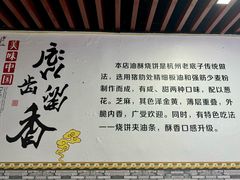 美味中国
唇齿留香
本店油酥烧饼是杭州老底子传统做
法，选用猪肋处精细板油和强筋少麦粉
制作而成，有咸、甜两种口味，配以葱
花。芝麻，其色泽金黄，薄层重叠，外
脆内香，广受欢迎。同时，有特色吃法
——烧饼夹油条，酥香口感升级。